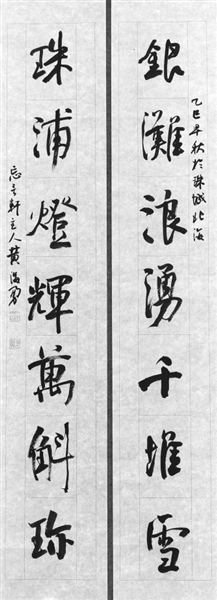 銀灘浪湧千堆雪
乙巳年秋於珠城北海
珠浦燈輝萬斛珍
忘言軒主人黃海勇